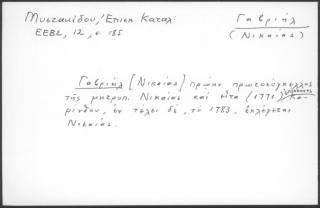 Μυστακίδου, Ἐπισκ. Καταλ
ΕΕΒΣ, 12, σ. 185
Γαβριήλ
(Νικαίας)
Γαβριήλ [Νικαίας] πρώην πρωτοσύγκελλος
τῆς μητροπ. Νικαίας καὶ εἶτα (1771) Κο-
ρίνθου, ἐν τέλει δέ, τὸ 1783, ἐκλέγεται
Νικαίας.